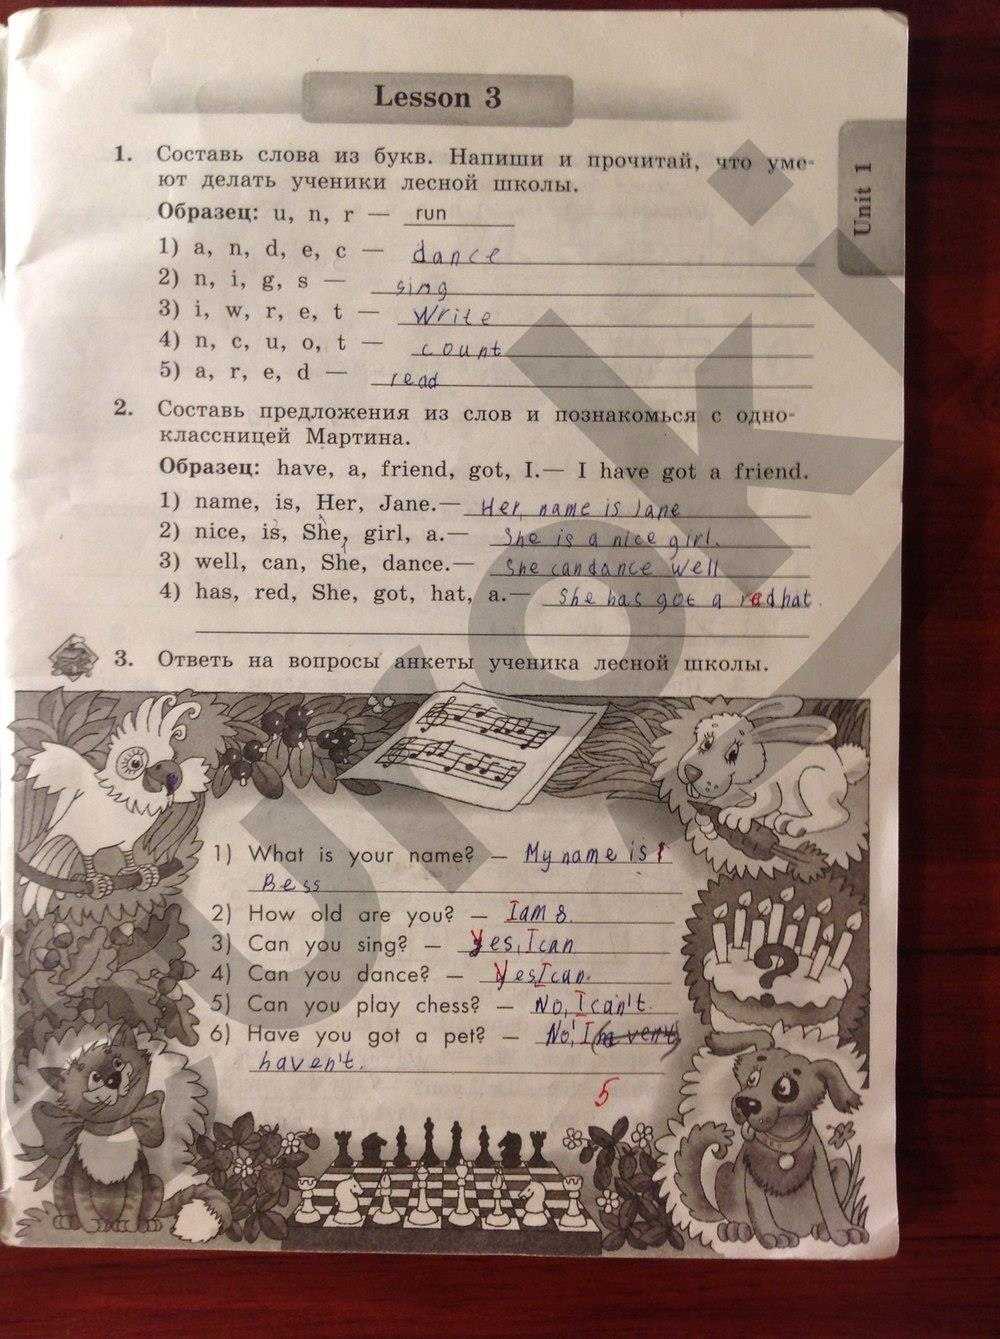 Lesson 3
Unit 1
1. Составь слова из букв. Напиши и прочитай, что уме-
ют делать ученики лесной школы.
Образец: u, n, r — run
1) a, n, d, e, c — dance
2) n, i, g, s — sing
3) i, w, r, e, t — Write
4) n, c, u, o, t — count
5) a, r, e, d — read
2. Составь предложения из слов и познакомься с одно-
классницей Мартина.
Образец: have, a, friend, got, I.— I have got a friend.
1) name, is, Her, Jane.— Her name is Jane
2) nice, is, She, girl, a.— She is a nice girl.
3) well, can, She, dance.— She can dance well
4) has, red, She, got, hat, a.— She has got a red hat.
3. Ответь на вопросы анкеты ученика лесной школы.
1) What is your name? — My name is
Bess
2) How old are you? — I am 8.
3) Can you sing? — Yes, I can
4) Can you dance? — Yes I can.
5) Can you play chess? — No, I can't.
6) Have you got a pet? — No, I
haven't.
5
?
uroki